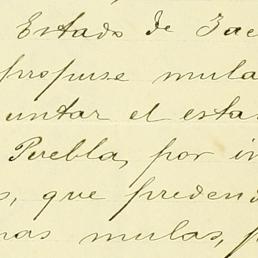 Estado de Zac
propuse mula
untar el esta
Puebla, por in
s, que predend
nas mulas, p